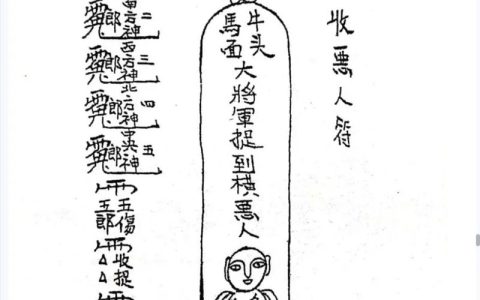 收悪人符
牛头
馬面
大將軍捉到橫悪人
南方神二郎
西方神三郎
北方神四郎
中央神五郎
五傷
五郎
收捉
△△